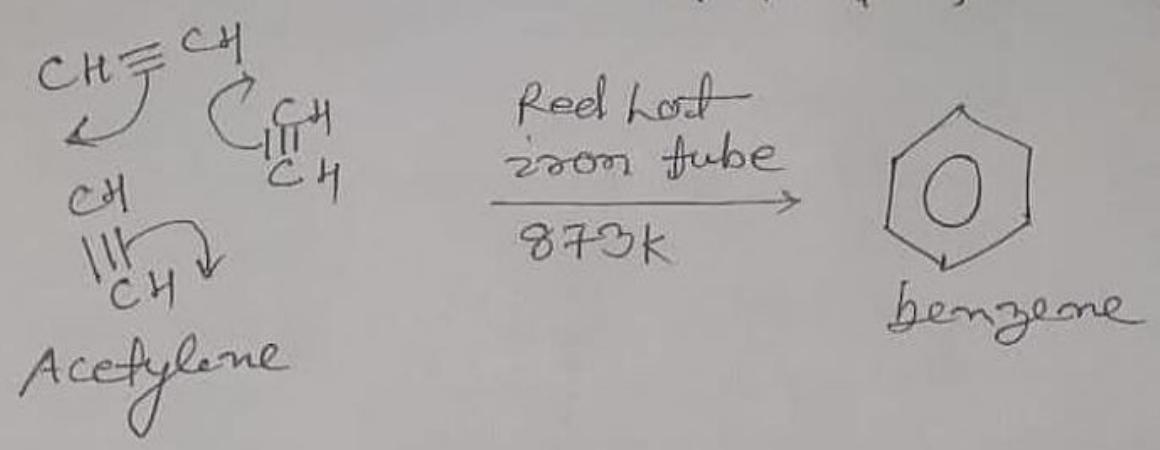 CH≡CH
CH
|||
CH
CH
|||
CH
Acetylene
Red hot
iron tube
873K
benzene